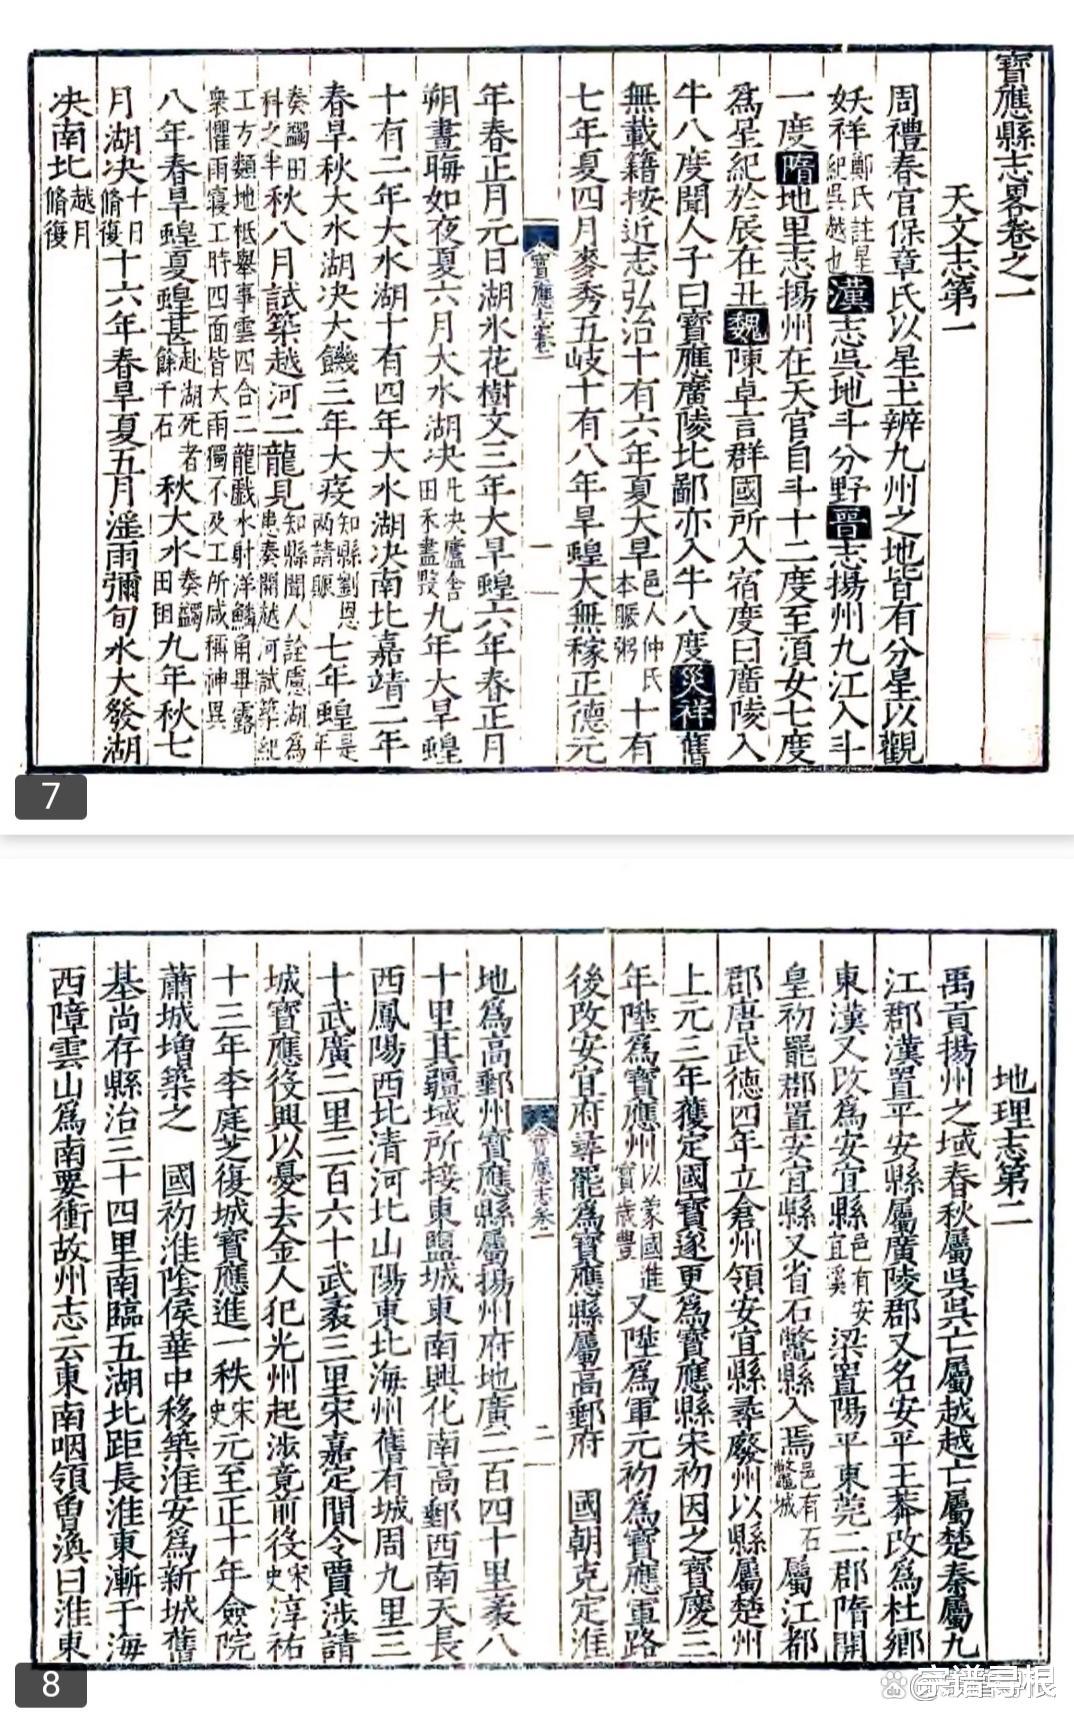 寳應縣志畧卷之一
天文志第一
周禮春官保章氏以星土辨九州之地皆有分星以觀
妖祥鄭氏註星紀吳越也漢志吳地斗分野晉志揚州九江入斗
一度隋地里志揚州在天官自斗十二度至湏女七度
爲星紀於辰在丑魏陳卓言群國所入宿度曰廣陵入
牛八度聞人子曰寳應廣陵比鄙亦入牛八度災祥舊
無載籍按近志弘治十有六年夏大旱邑人仲氏本賑粥十有
七年夏四月麥秀五岐十有八年旱蝗大無稼正德元
寳應志卷一
一
年春正月元日湖氷花樹文三年大旱蝗六年春正月
朔晝晦如夜夏六月大水湖决漂决廬舍田禾盡歿九年大旱蝗
十有二年大水湖十有四年大水湖决南北嘉靖二年
春旱秋大水湖决大饑三年大疫知縣劉恩兩請賑七年蝗是年
奏蠲田科之半秋八月試築越河二龍見知縣聞人詮慮湖爲患奏開越河試築紀
工方麵地柢舉事雲四合二龍戲水射洋鱗角畢露
衆懼雨寢工時四面皆大雨獨不及工所咸稱神異
八年春旱蝗夏蝗甚赴湖死者餘千石秋大水奏蠲田租九年秋七
月湖决十日脩復十六年春旱夏五月滛雨彌旬水大發湖
决南北越月脩復
7
地理志第二
禹貢揚州之域春秋屬吳吳亡屬越越亡屬楚秦屬九
江郡漢置平安縣屬廣陵郡又名安平王莽改爲杜鄉
東漢又改爲安宜縣邑有安宜溪梁置陽平東莞二郡隋開
皇初罷郡置安宜縣又省石鱉縣入焉邑有石鱉城屬江都
郡唐武德四年立倉州領安宜縣尋廢州以縣屬楚州
上元三年獲定國寳遂更爲寳應縣宋初因之寳慶三
年陞爲寳應州以蒙國進寳歲豐又陞爲軍元初爲寳應軍路
後改安宜府尋罷爲寳應縣屬高郵府 國朝克定淮
寳應志卷一
二
地爲高郵州寳應縣屬揚州府地廣二百四十里袤八
十里其疆域所接東鹽城東南興化南高郵西南天長
西鳳陽西北清河北山陽東北海州舊有城周九里三
十武廣二里二百六十武袤三里宋嘉定間令賈涉請
城寳應役興以憂去金人犯光州起涉竟前役宋史淳祐
十三年李庭芝復城寳應進一秩宋史元至正十年僉院
蕭城增築之 國初淮陰侯華中移築淮安爲新城舊
基尚存縣治三十四里南臨五湖北距長淮東漸于海
西障雲山爲南要衝故州志云東南咽領魯渙曰淮東
8
@宗譜尋根